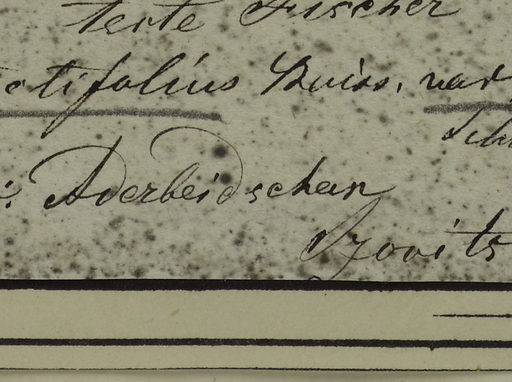 teste Fischer
ctifolius Boiss. var.
Aderbeidschan
Szovits